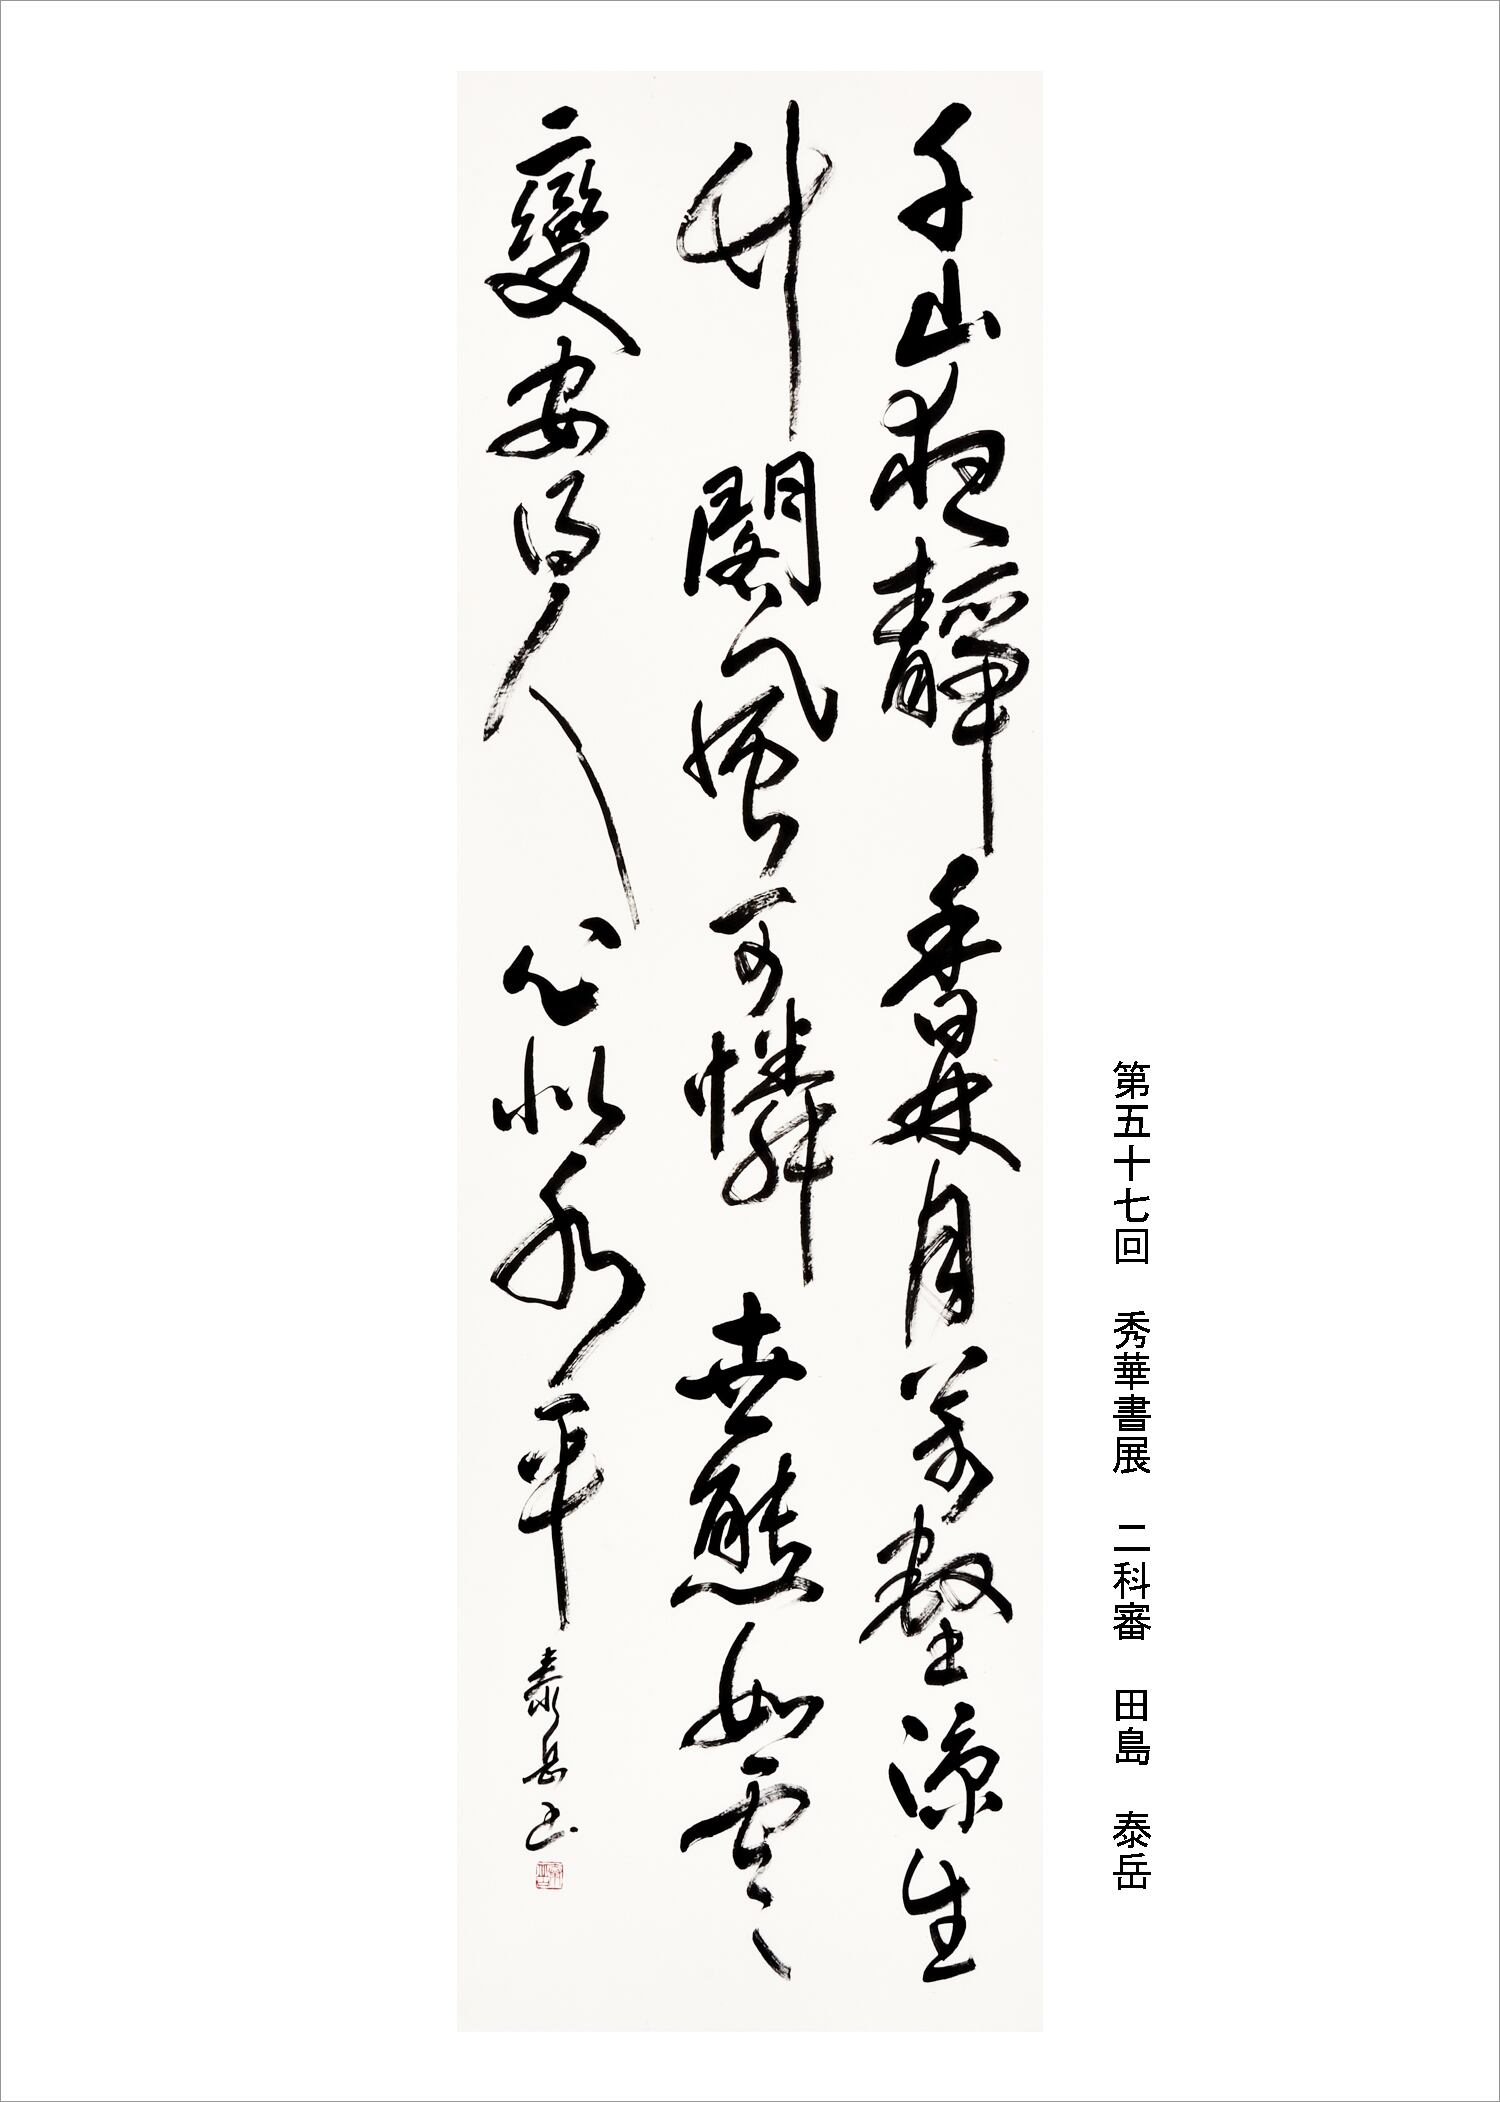 第五十七回　秀華書展　二科審　田島　泰岳
千山夜靜香林月萬壑涼生
竹閣風可憐世態如雲
變安得人心似水平
泰岳書